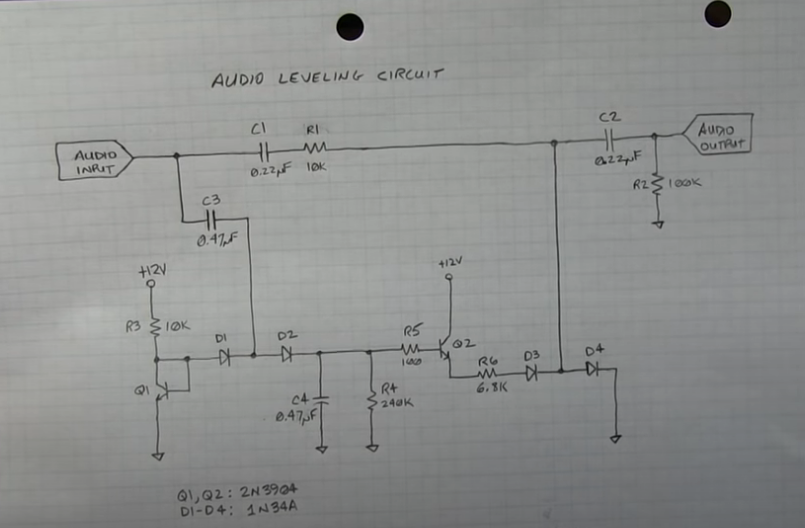 AUDIO LEVELING CIRCUIT
C1
R1
C2
AUDIO
INPUT
AUDIO
OUTPUT
0.22µF
10K
0.22µF
R2
100K
C3
0.47µF
+12V
+12V
R3
10K
D1
D2
R5
100
Q2
R6
6.8K
D3
D4
Q1
C4
0.47µF
R4
240K
Q1,Q2: 2N3904
D1-D4: 1N34A